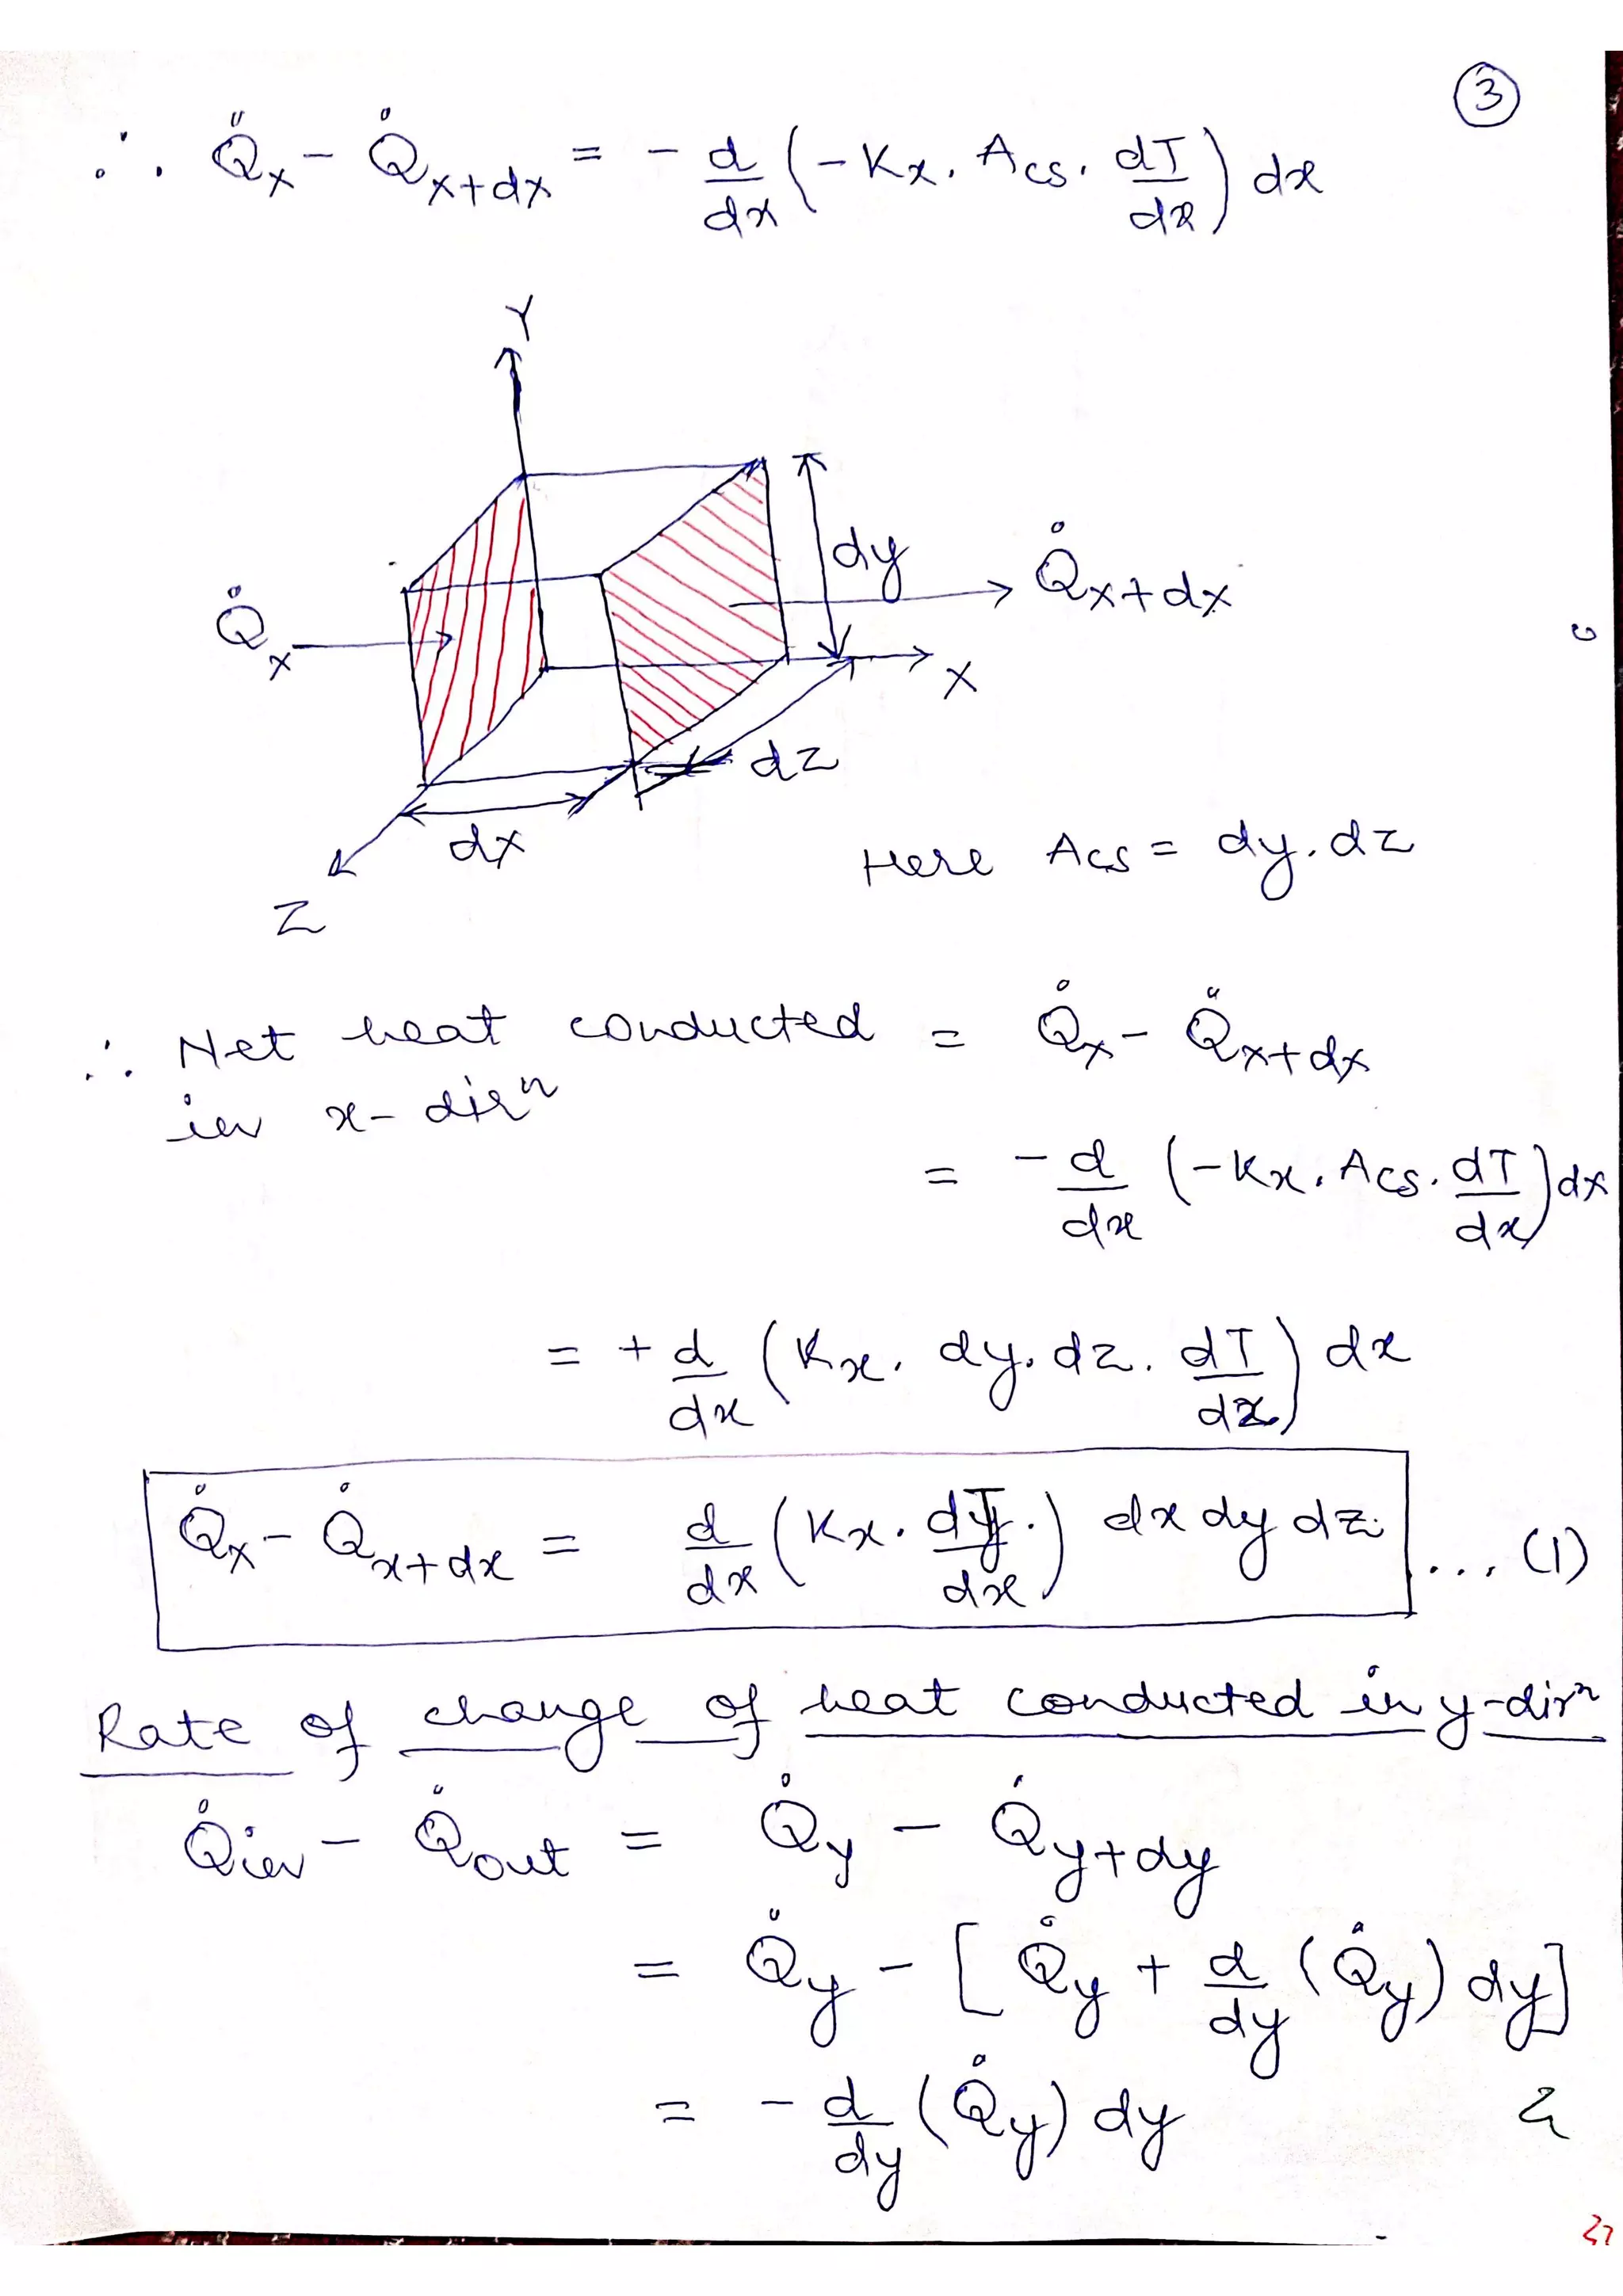 3
∴ Q̇x - Q̇x+dx = - d/dx (-Kx. Acs. dT/dx) dx
Y
dy
Q̇x+dx
Q̇x
X
dz
dx
Here Acs = dy.dz
Z
∴ Net heat conducted = Q̇x - Q̇x+dx
in x-dirⁿ
= - d/dx (-Kx. Acs. dT/dx) dx
= + d/dx (Kx. dy.dz. dT/dx) dx
Q̇x - Q̇x+dx = d/dx (Kx. dT/dx) dx dy dz ... (1)
Rate of change of heat conducted in y-dirⁿ
Q̇in - Q̇out = Q̇y - Q̇y+dy
= Q̇y - [Q̇y + d/dy (Q̇y) dy]
= - d/dy (Q̇y) dy